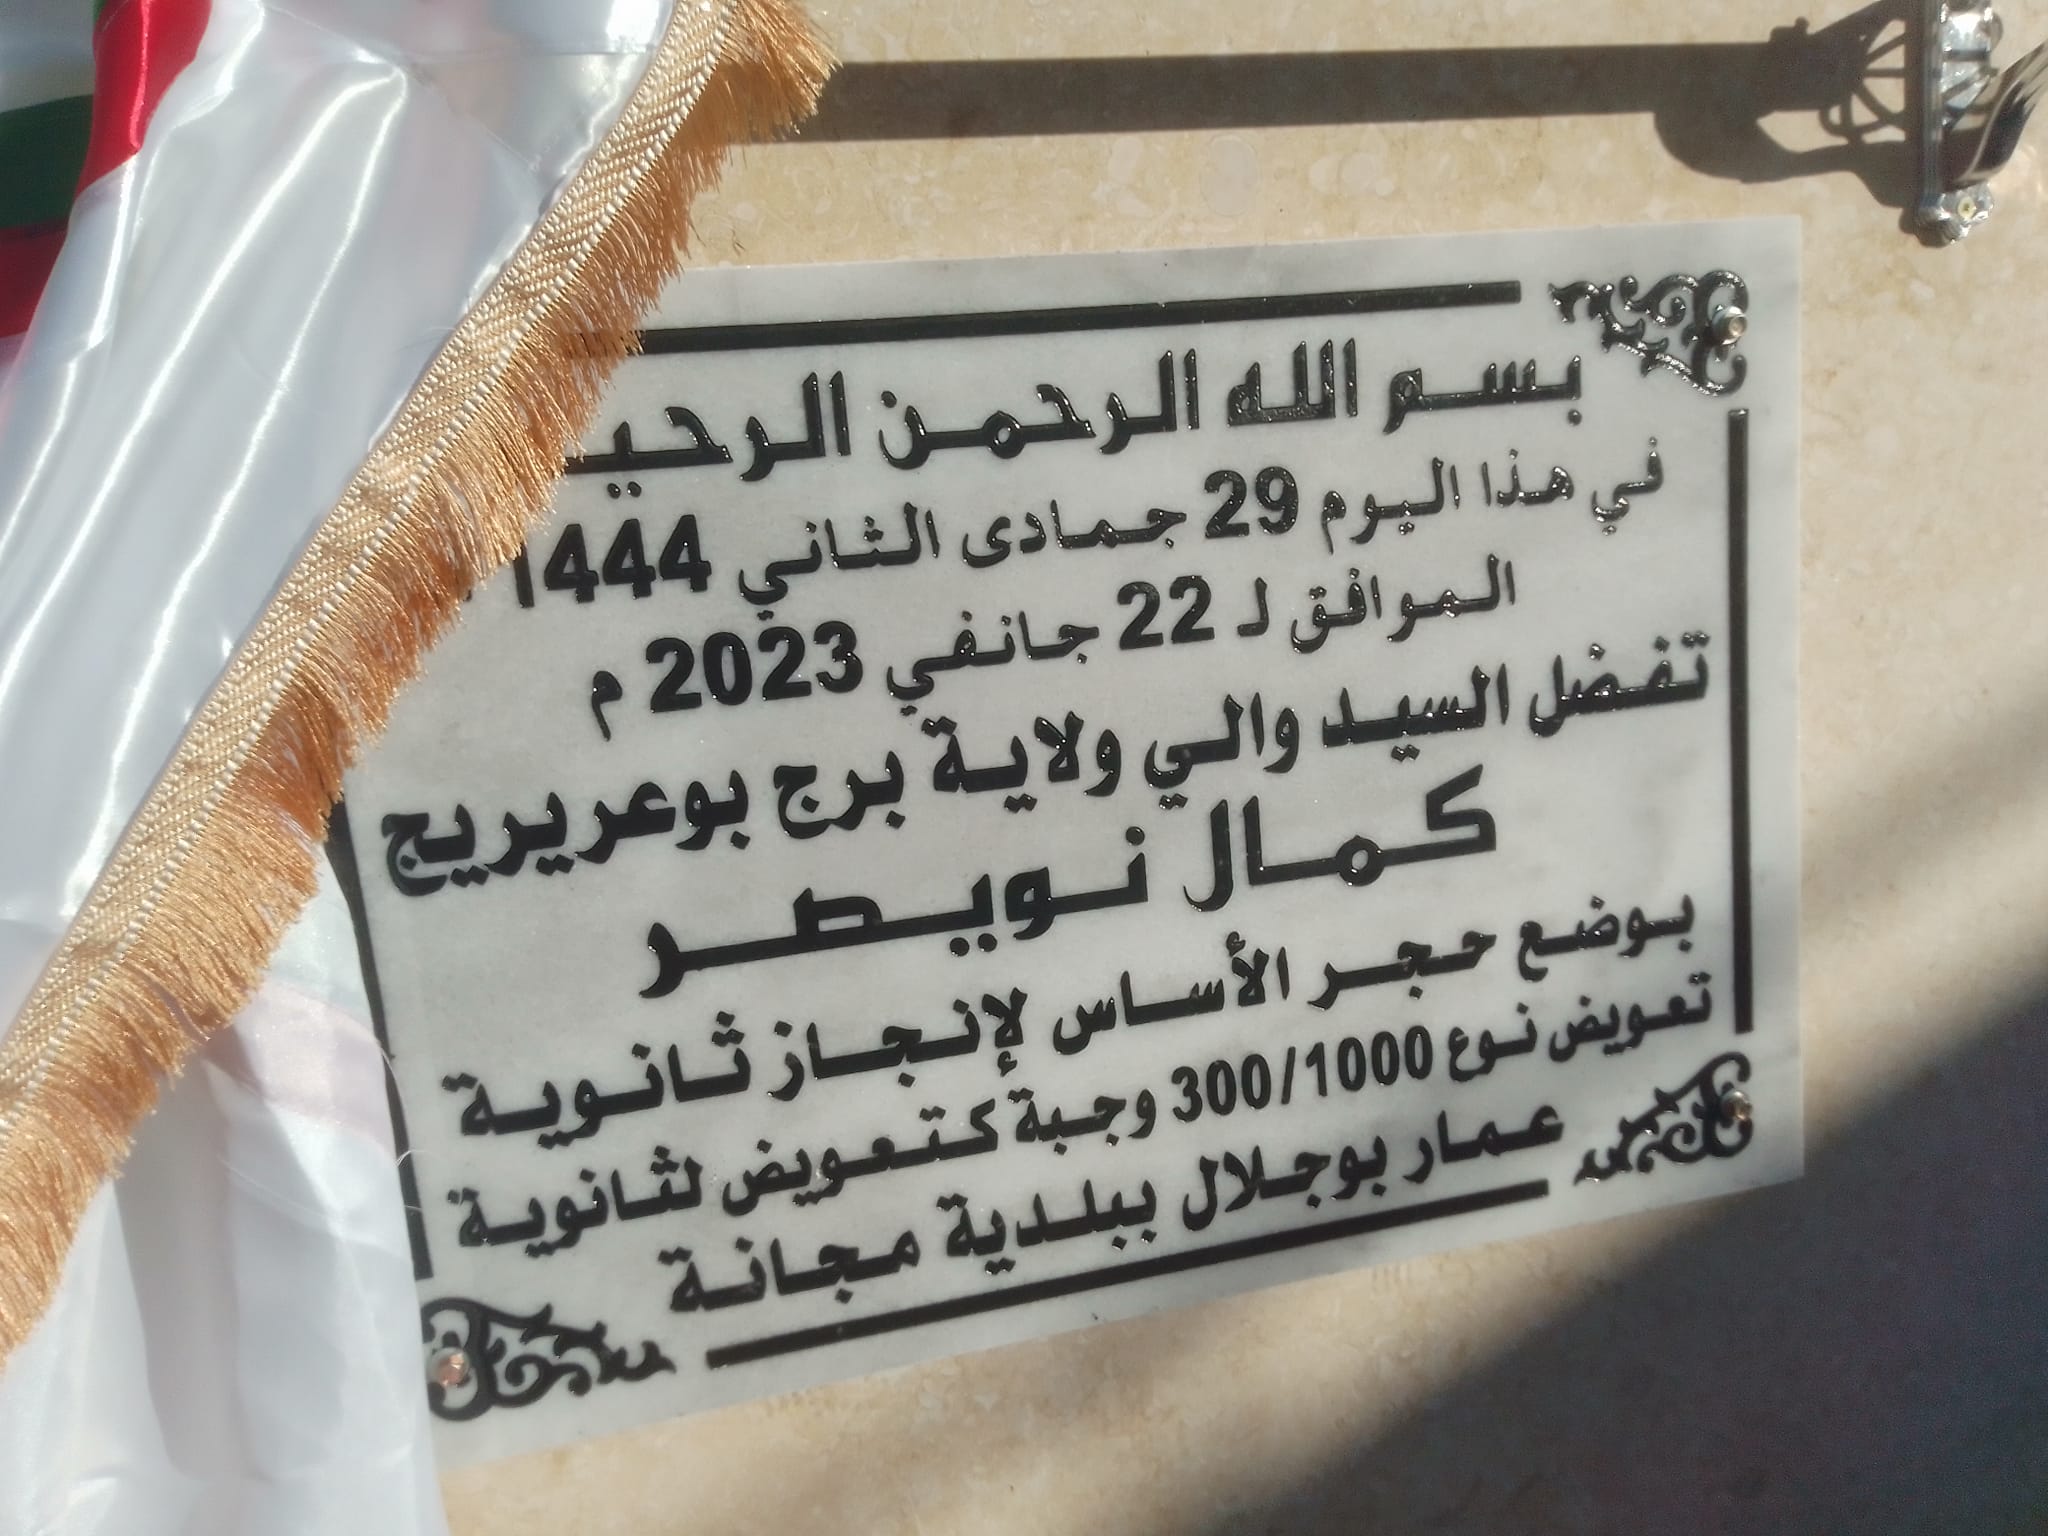 بسم الله الرحمن الرحيـ
في هذا اليوم 29 جمادى الثاني 1444
الموافق لـ 22 جانفي 2023 م
تفضل السيد والي ولاية برج بوعريريج
كمال نويصر
بوضع حجر الأساس لإنجاز ثانوية
تعويض نوع 300/1000 وجبة كتعويض لثانوية
عمار بوجلال ببلدية مجانة